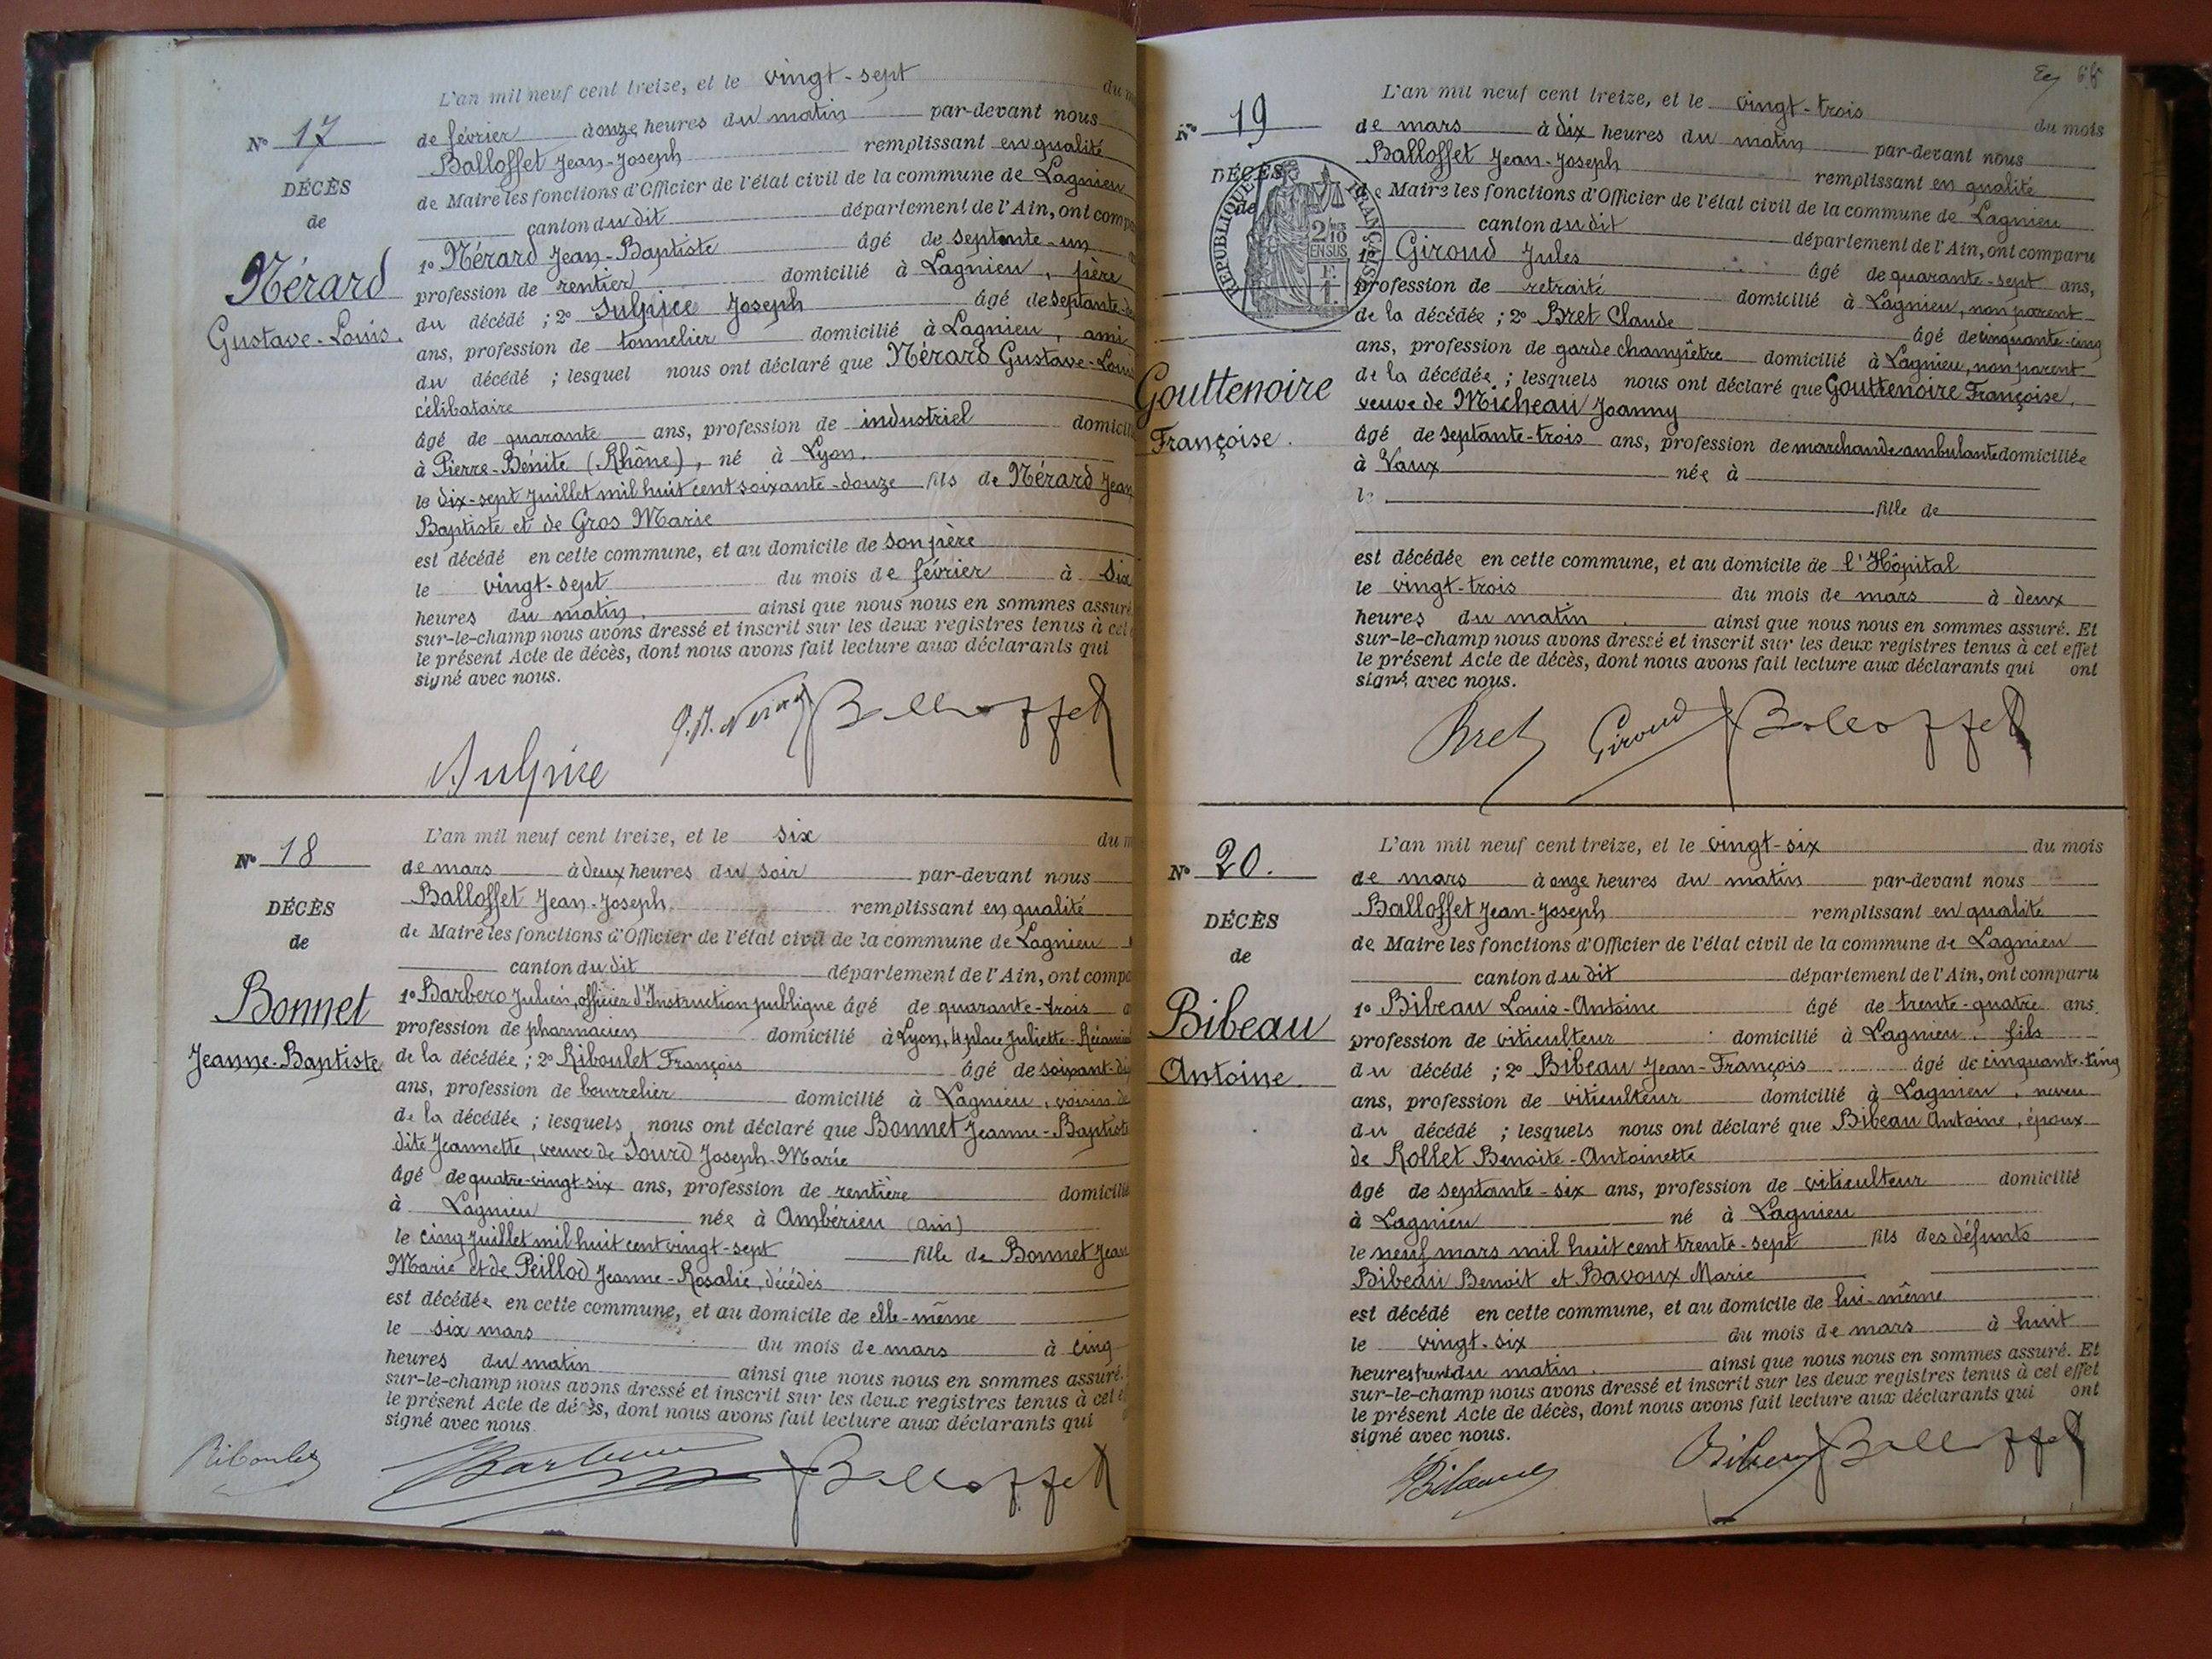 L'an mil neuf cent treize, et le vingt-sept
Nº 17
de février à onze heures du matin par-devant nous
Balloffet Jean-Joseph remplissant en qualité
DÉCÈS
de Maire les fonctions d'Officier de l'état civil de la commune de Lagnieu
de
canton du dit département de l'Ain, ont
1º Nérard Jean-Baptiste âgé de septante-un
Nérard
profession de rentier domicilié à Lagnieu, père
Gustave-Louis.
du décédé ; 2º Sulpice Joseph âgé de
ans, profession de tonnelier domicilié à Lagnieu, ami
du décédé ; lesquel nous ont déclaré que Nérard Gustave-Louis
célibataire
âgé de quarante ans, profession de industriel
à Pierre-Bénite (Rhône), né à Lyon.
le dix-sept Juillet mil huit cent soixante-douze fils de Nérard Jean
Baptiste et de Gros Marie
est décédé en cette commune, et au domicile de son père
le vingt-sept du mois de février à six
heures du matin. ainsi que nous nous en sommes assuré
sur-le-champ nous avons dressé et inscrit sur les deux registres tenus à cet
le présent Acte de décès, dont nous avons fait lecture aux déclarants qui
signé avec nous.
Balloffet
Sulpice
L'an mil neuf cent treize, et le six
Nº 18
de mars à deux heures du soir par-devant nous
Balloffet Jean-Joseph remplissant en qualité
DÉCÈS
de Maire les fonctions d'Officier de l'état civil de la commune de Lagnieu
de
canton du dit département de l'Ain, ont
1º Barbero Julien, officier d'Instruction publique âgé de quarante-trois
Bonnet
profession de pharmacien domicilié à Lyon, 4 place Juliette-Récamier
Jeanne-Baptiste
de la décédée ; 2º Riboulet François âgé de
ans, profession de bourrelier domicilié à Lagnieu, voisin de
de la décédée ; lesquels nous ont déclaré que Bonnet Jeanne-Baptiste
dite Jeannette, veuve de Sourd Joseph-Marie
âgé de quatre-vingt-six ans, profession de rentière domicilié
à Lagnieu née à Ambérieu (ain)
le cinq Juillet mil huit cent vingt-sept fille de Bonnet Jean
Marie et de Peillod Jeanne-Rosalie, décédés
est décédée en cette commune, et au domicile de elle-même
le six mars du mois de mars à cinq
heures du matin ainsi que nous nous en sommes assuré.
sur-le-champ nous avons dressé et inscrit sur les deux registres tenus à cet
le présent Acte de décès, dont nous avons fait lecture aux déclarants qui
signé avec nous.
Riboulet Balloffet
L'an mil neuf cent treize, et le vingt-trois du mois
Nº 19
de mars à dix heures du matin par-devant nous
Balloffet Jean-Joseph remplissant en qualité
DÉCÈS
de Maire les fonctions d'Officier de l'état civil de la commune de Lagnieu
de
canton du dit département de l'Ain, ont comparu
RÉPUBLIQUE FRANÇAISE
2/10
EN SUS
1º Giroud Jules âgé de quarante-sept ans,
profession de retraité domicilié à Lagnieu, non parent
de la décédée ; 2º Bret Claude âgé de cinquante-cinq
ans, profession de garde champêtre domicilié à Lagnieu, non parent
Gouttenoire
de la décédée ; lesquels nous ont déclaré que Gouttenoire Françoise,
veuve de Micheau Joanny
Françoise.
âgé de septante-trois ans, profession de marchande ambulante domiciliée
à Vaux née à
le
fille de
est décédée en cette commune, et au domicile de l'Hôpital
le vingt-trois du mois de mars à deux
heures du matin. ainsi que nous nous en sommes assuré. Et
sur-le-champ nous avons dressé et inscrit sur les deux registres tenus à cet effet
le présent Acte de décès, dont nous avons fait lecture aux déclarants qui ont
signé avec nous.
Bret Giroud Balloffet
L'an mil neuf cent treize, et le vingt-six du mois
Nº 20.
de mars à onze heures du matin par-devant nous
Balloffet Jean-Joseph remplissant en qualité
DÉCÈS
de Maire les fonctions d'Officier de l'état civil de la commune de Lagnieu
de
canton du dit département de l'Ain, ont comparu
1º Bibeau Louis-Antoine âgé de trente-quatre ans,
Bibeau
profession de viticulteur domicilié à Lagnieu, fils
Antoine.
du décédé ; 2º Bibeau Jean-François âgé de cinquante-cinq
ans, profession de viticulteur domicilié à Lagnieu, neveu
du décédé ; lesquels nous ont déclaré que Bibeau Antoine, époux
de Rollet Benoite-Antoinette
âgé de septante-six ans, profession de viticulteur domicilié
à Lagnieu né à Lagnieu
le neuf mars mil huit cent trente-sept fils des défunts
Bibeau Benoit et Bavoux Marie
est décédé en cette commune, et au domicile de lui-même
le vingt-six du mois de mars à huit
heures trente du matin. ainsi que nous nous en sommes assuré. Et
sur-le-champ nous avons dressé et inscrit sur les deux registres tenus à cet effet
le présent Acte de décès, dont nous avons fait lecture aux déclarants qui ont
signé avec nous.
Bibeau Bibeau Balloffet